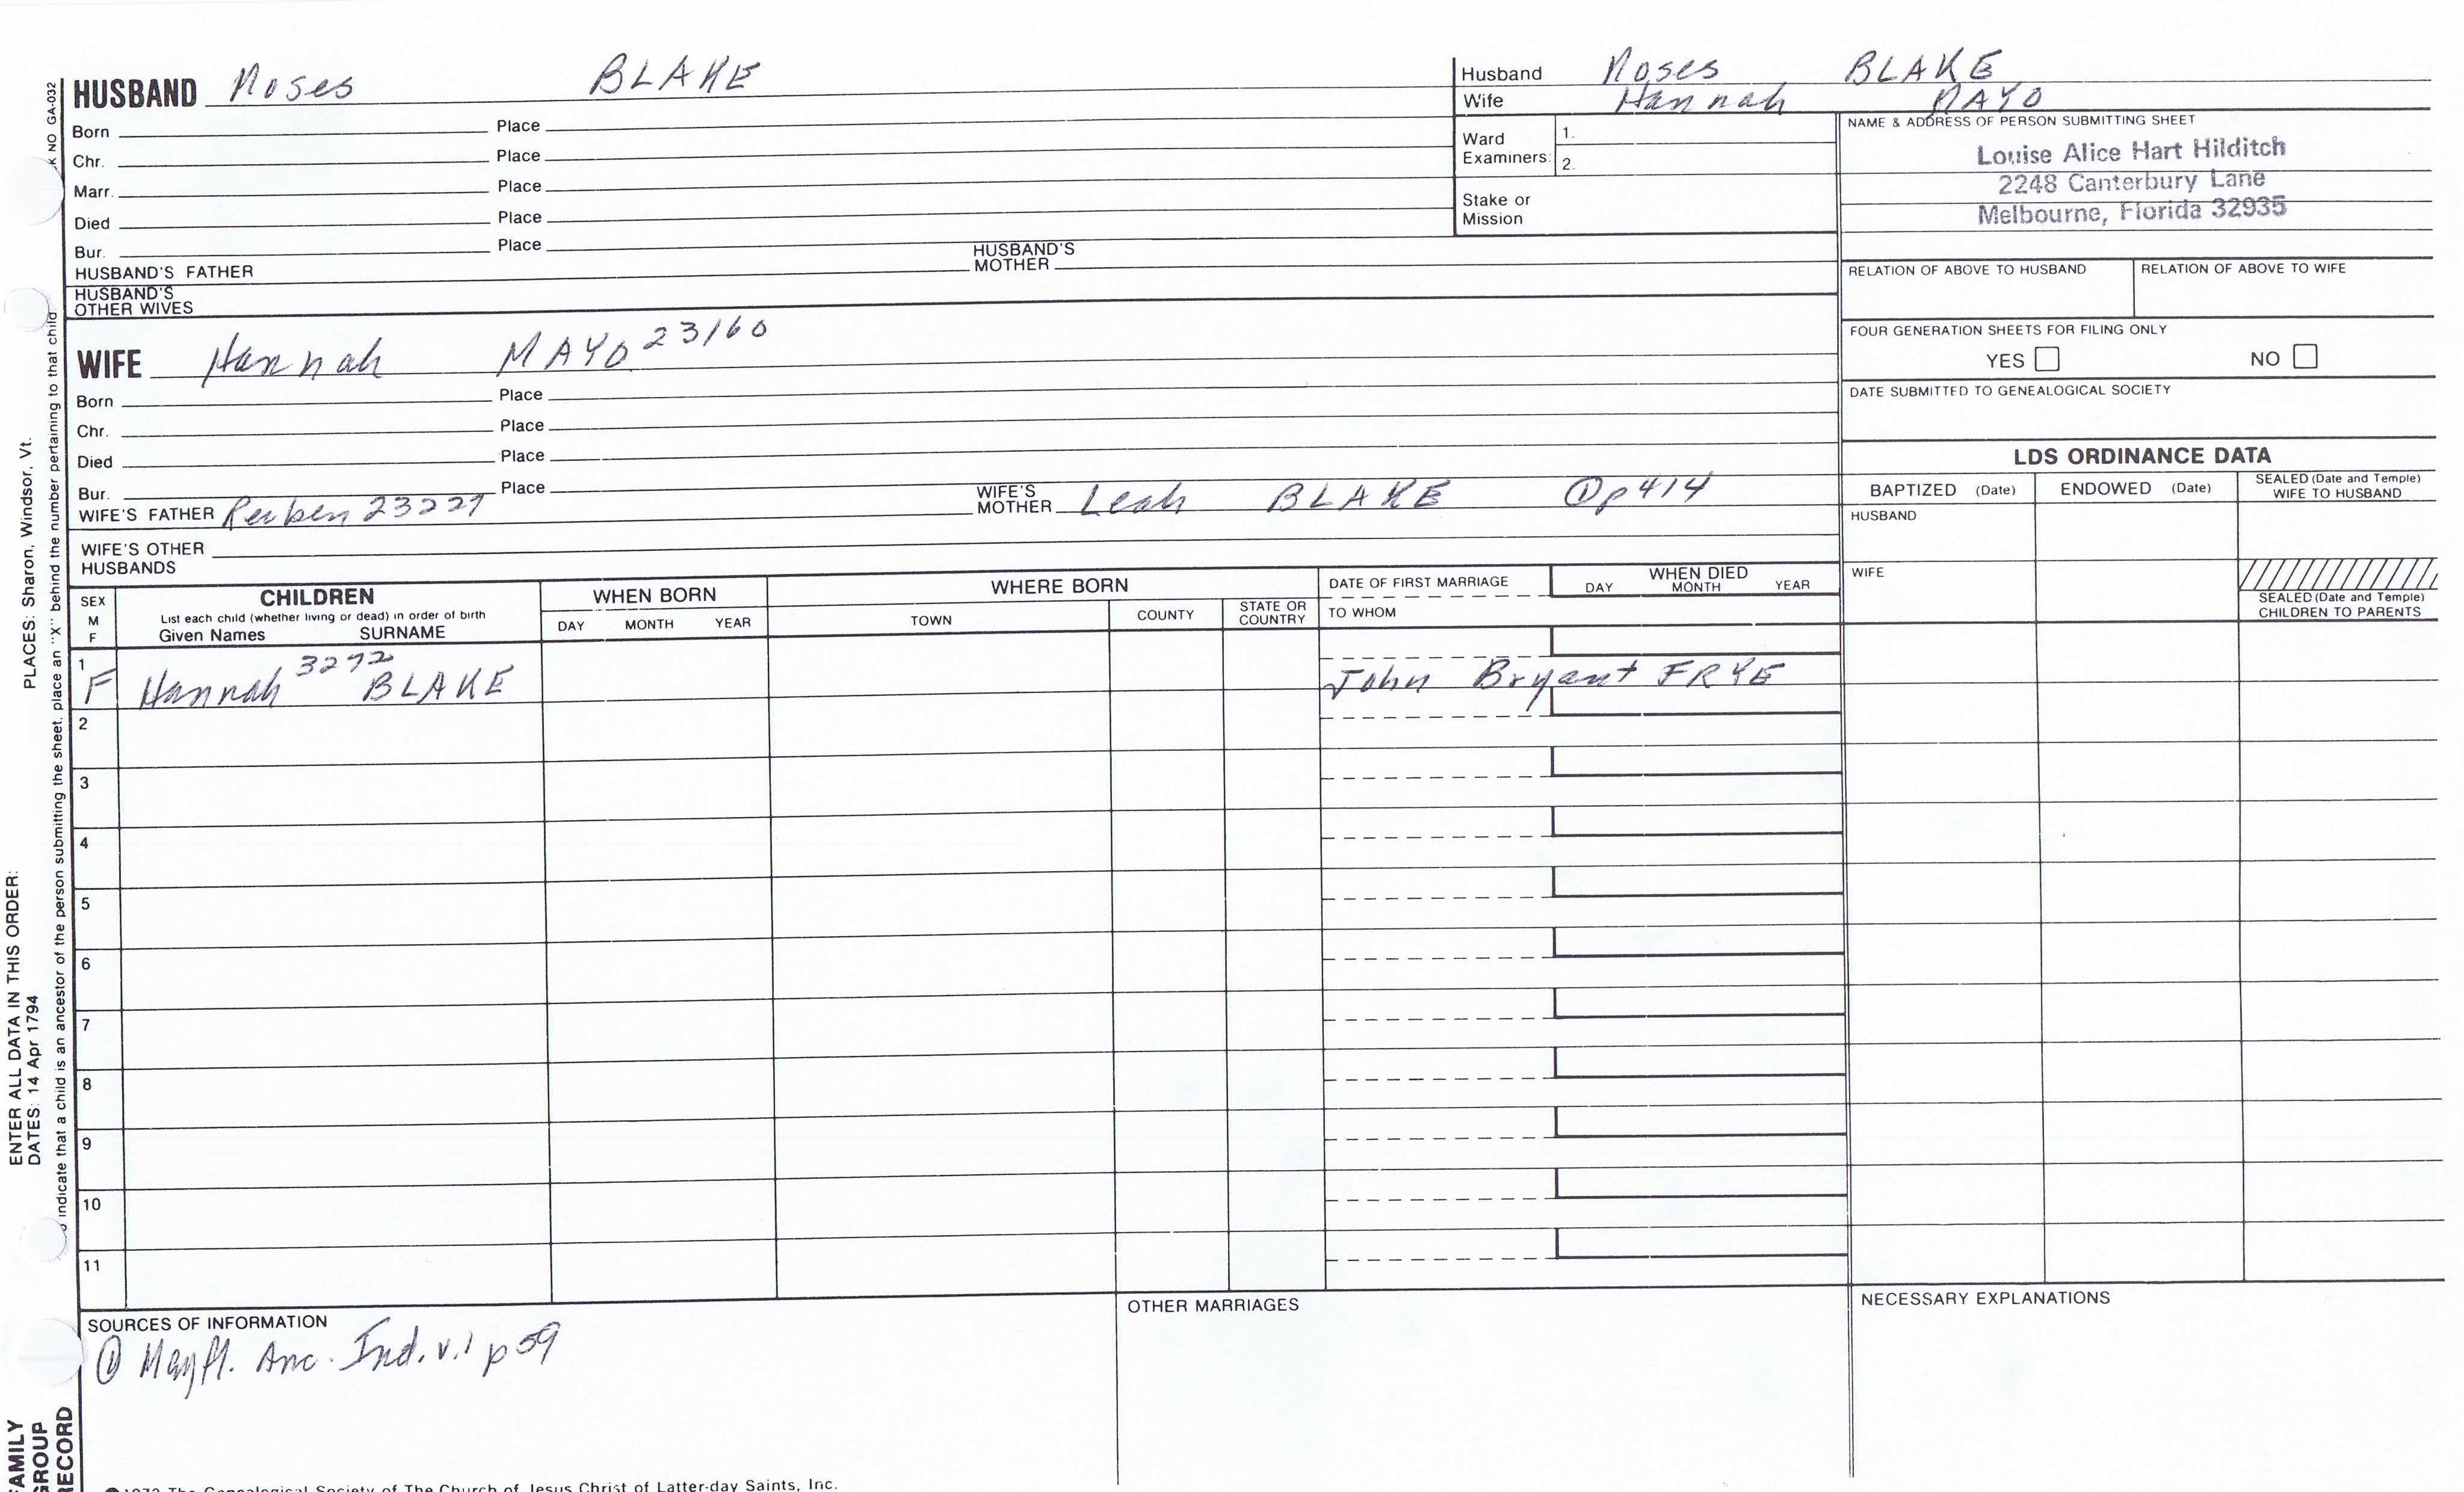 HUSBAND Moses BLAKE
Born Place
Chr. Place
Marr. Place
Died Place
Bur. Place
HUSBAND'S FATHER HUSBAND'S MOTHER
HUSBAND'S OTHER WIVES
WIFE Hannah MAYO 23160
Born Place
Chr. Place
Died Place
Bur. Place
WIFE'S FATHER Reuben 23227 WIFE'S MOTHER Leah BLAKE ① p414
WIFE'S OTHER HUSBANDS
Husband Moses BLAKE
Wife Hannah MAYO
Ward Examiners: 1.
2.
Stake or Mission
NAME & ADDRESS OF PERSON SUBMITTING SHEET
Louise Alice Hart Hilditch
2248 Canterbury Lane
Melbourne, Florida 32935
RELATION OF ABOVE TO HUSBAND RELATION OF ABOVE TO WIFE
FOUR GENERATION SHEETS FOR FILING ONLY
YES NO
DATE SUBMITTED TO GENEALOGICAL SOCIETY
LDS ORDINANCE DATA
BAPTIZED (Date) ENDOWED (Date) SEALED (Date and Temple) WIFE TO HUSBAND
HUSBAND
WIFE
SEALED (Date and Temple) CHILDREN TO PARENTS
SEX M F
CHILDREN
List each child (whether living or dead) in order of birth
Given Names SURNAME
WHEN BORN
DAY MONTH YEAR
WHERE BORN
TOWN COUNTY STATE OR COUNTRY
DATE OF FIRST MARRIAGE
TO WHOM
WHEN DIED
DAY MONTH YEAR
1 F Hannah 3272 BLAKE John Bryant FRYE
2
3
4
5
6
7
8
9
10
11
SOURCES OF INFORMATION
① Mayfl. Anc. Ind. v.1 p 59
OTHER MARRIAGES
NECESSARY EXPLANATIONS
1972 The Genealogical Society of The Church of Jesus Christ of Latter-day Saints, Inc.
K NO GA-032
indicate that a child is an ancestor of the person submitting the sheet, place an "X" behind the number pertaining to that child
PLACES: Sharon, Windsor, Vt.
ENTER ALL DATA IN THIS ORDER:
DATES: 14 Apr 1794
FAMILY
GROUP
RECORD